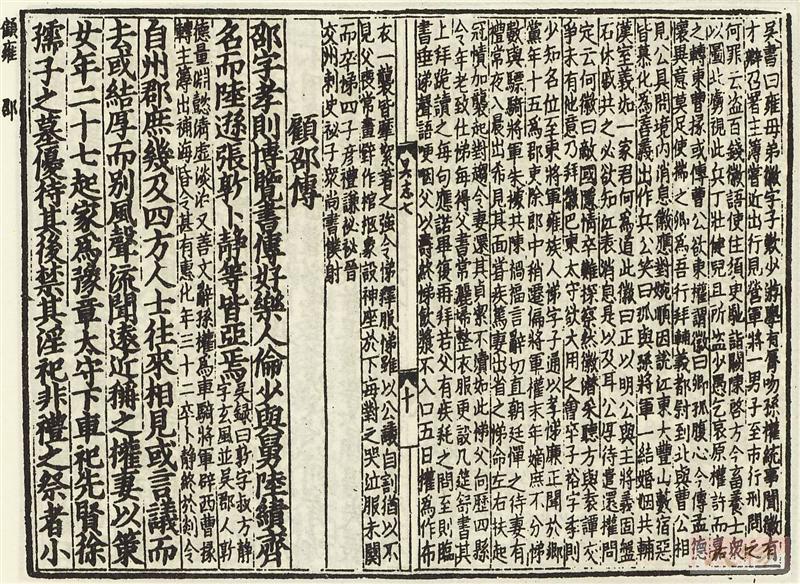 吳書曰雍母弟徽字子歎少游學有脣吻孫權統事聞徽有
才辯召署主簿嘗近出行見營軍將一男子至市行刑問之
何罪云盜百錢徽語使住須臾馳詣闕陳啓方今畜養士衆
以圖北虜視此兵丁壯健兒且所盜少愚乞哀原權許而嘉
之轉東曹掾或傳曹公欲東權謂徽曰卿孤腹心今傳孟德
懷異意莫足使揣之卿爲吾行拜輔義都尉到北與曹公相
見公具問境内消息徽應對婉順因說江東大豐山藪宿惡
皆慕化爲善義出作兵公笑曰孤與孫將軍一結婚姻共輔
漢室義如一家君何爲道此徽曰正以明公與主將義固盤
石休戚共之必欲知江表消息是以及耳公厚待遣還權問
定云何徽曰敵國隱情卒難探察然徽潛采聽方與袁譚交
爭未有他意乃拜徽巴東太守欲大用之會卒子裕字季則
少知名位至鎮東將軍雍族人悌字子通以孝悌廉正聞於鄉
黨年十五爲郡吏除郎中稍遷偏將軍權末年嫡庶不分悌
數與驃騎將軍朱據共陳禍福言辭切直朝廷憚之待妻有
禮常夜入晨出希見其面嘗疾篤妻出省之悌命左右扶起
冠幘加襲起對趣令妻還其貞潔不瀆如此悌父向歷四縣
令年老致仕悌每得父書常灑掃整衣服更設几筵舒書其
上拜跪讀之每句應諾畢復再拜若父有疾耗之問至則臨
書垂涕聲語哽咽父以壽終悌飲漿不入口五日權爲作布
衣一襲皆摩絮著之強令悌釋服悌雖以公議自割猶以不
見父喪常畫壁作棺柩象設神座於下每對之哭泣服未闋
而卒悌四子彥禮謙祕祕晉
交州刺史祕子衆尚書僕射
顧邵傳
邵字孝則博覽書傳好樂人倫少與舅陸績齊
名而陸遜張敦卜靜等皆亞焉吳録曰敦字叔方靜字玄風並吳郡人敦
德量淵懿清虛淡泊又善文辭孫權爲車騎將軍辟西曹掾
轉主簿出補海昏令甚有惠化年三十二卒卜靜終於剡令
自州郡庶幾及四方人士往來相見或言議而
去或結厚而别風聲流聞遠近稱之權妻以策
女年二十七起家爲豫章太守下車祀先賢徐
孺子之墓優待其後禁其淫祀非禮之祭者小
顧雍 邵
十